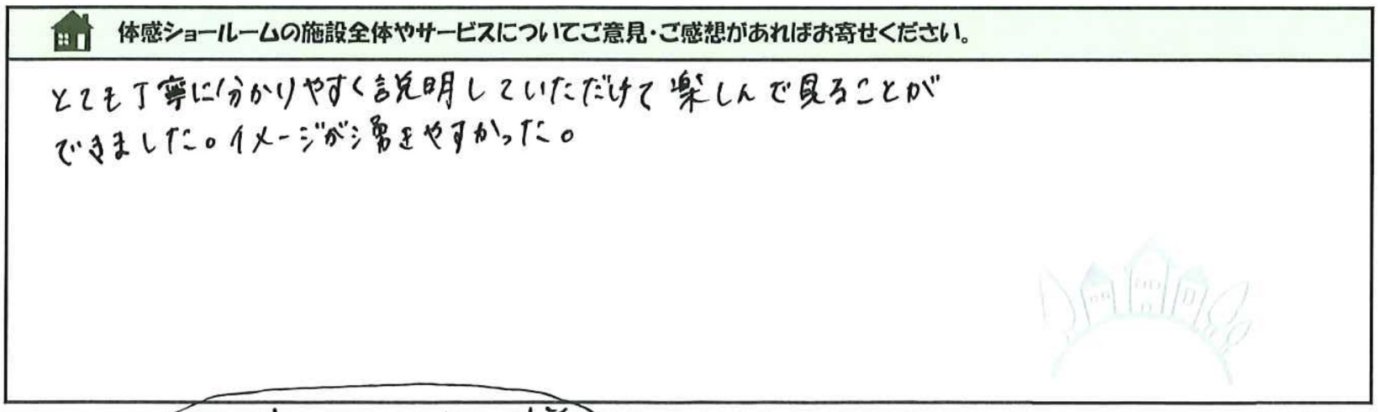 体感ショールームの施設全体やサービスについてご意見・ご感想があればお寄せください。
とても丁寧に分かりやすく説明していただけて楽しんで見ることが
できました。イメージが湧きやすかった。
様